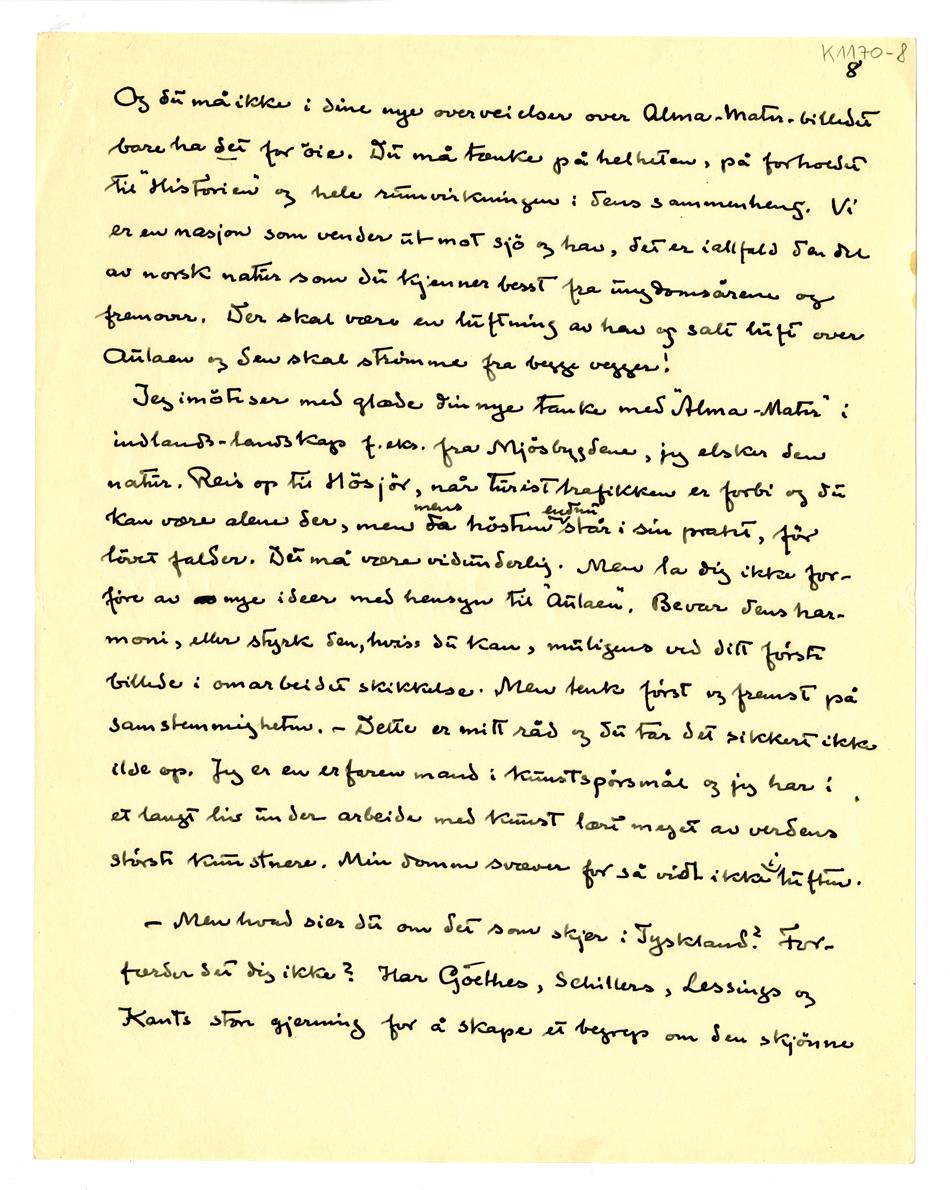 K1170-8
8
Og du må ikke i dine nye overveielser over Alma-Mater-billedet
bare ha det for öie. Du må tænke på helheten, på forholdet
til "Historien" og hele rumvirkningen i dens sammenheng. Vi
er en nasjon som vender ut mot sjö og hav, det er iallfald den del
av norsk natur som du kjenner besst fra ungdomsårene og
fremover. Der skal være en luftning av hav og salt luft over
Aulaen og den skal strömme fra begge vegger!
Jeg imöteser med glæde din nye tanke med "Alma-Mater" i
indlands-landskap f.eks. fra Mjösbygdene, jeg elsker den
natur. Reis op til Hösjör, når turisttrafikken er forbi og du
kan være alene der, men da mens hösten endnu står i sin prakt, för
lövet falder. Det må være vidunderlig. Men la dig ikke for-
före av nye ideer med hensyn til "Aulaen". Bevar dens har-
moni, eller styrk den, hvis du kan, muligens ved ditt förste
billede i omarbeidet skikkelse. Men tenk först og fremst på
samstemmigheten. – Dette er mitt råd og du tar det sikkert ikke
ilde op. Jeg er en erfaren mand i kunstspörsmål og jeg har i
et langt liv under arbeide med kunst lært meget av verdens
störste kunstnere. Min domm svæver for så vidt ikke i luften.
– Men hvad sier du om det som skjer i Tyskland? For-
færder det dig ikke? Har Göethes, Schillers, Lessings og
Kants store gjerning for å skape et begrep om den skjönne